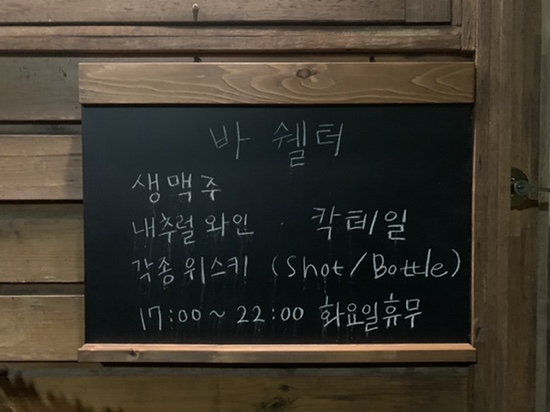 바 쉘터
생맥주
내추럴 와인 · 칵테일
각종 위스키 (Shot/Bottle)
17:00 ~ 22:00 화요일휴무